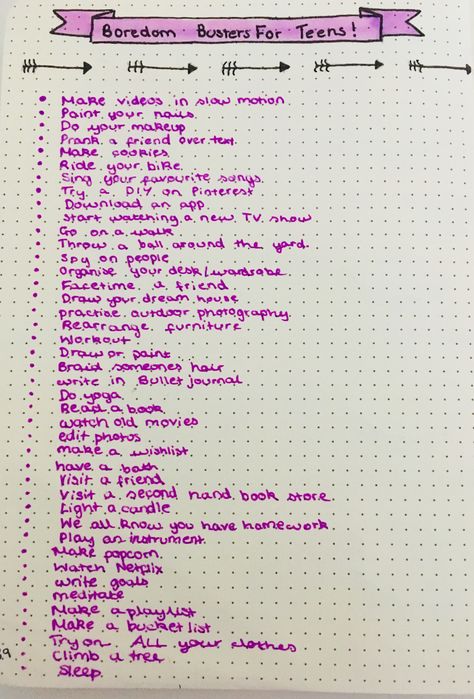 Boredom Busters For Teens!
• Make videos in slow motion
• Paint your nails
• Do your makeup
• Prank a friend over text
• Make cookies
• Ride your bike
• Sing your favourite songs
• Try a D.I.Y. on Pinterest
• Download an app
• Start watching a new T.V. show
• Go on a walk
• Throw a ball around the yard
• Spy on people
• Organise your desk/wardrobe
• Facetime a friend
• Draw your dream house
• practise outdoor photography
• Rearrange furniture
• Workout
• Draw or paint
• Braid someones hair
• write in Bullet journal
• Do yoga
• Read a book
• watch old movies
• edit photos
• make a wishlist
• have a bath
• Visit a friend
• Visit a second hand book store
• Light a candle
• We all know you have homework
• Play an instrument
• Make popcorn
• Watch Netflix
• write goals
• meditate
• Make a playlist
• Make a bucket list
• Try on ALL your clothes
• Climb a tree
• Sleep